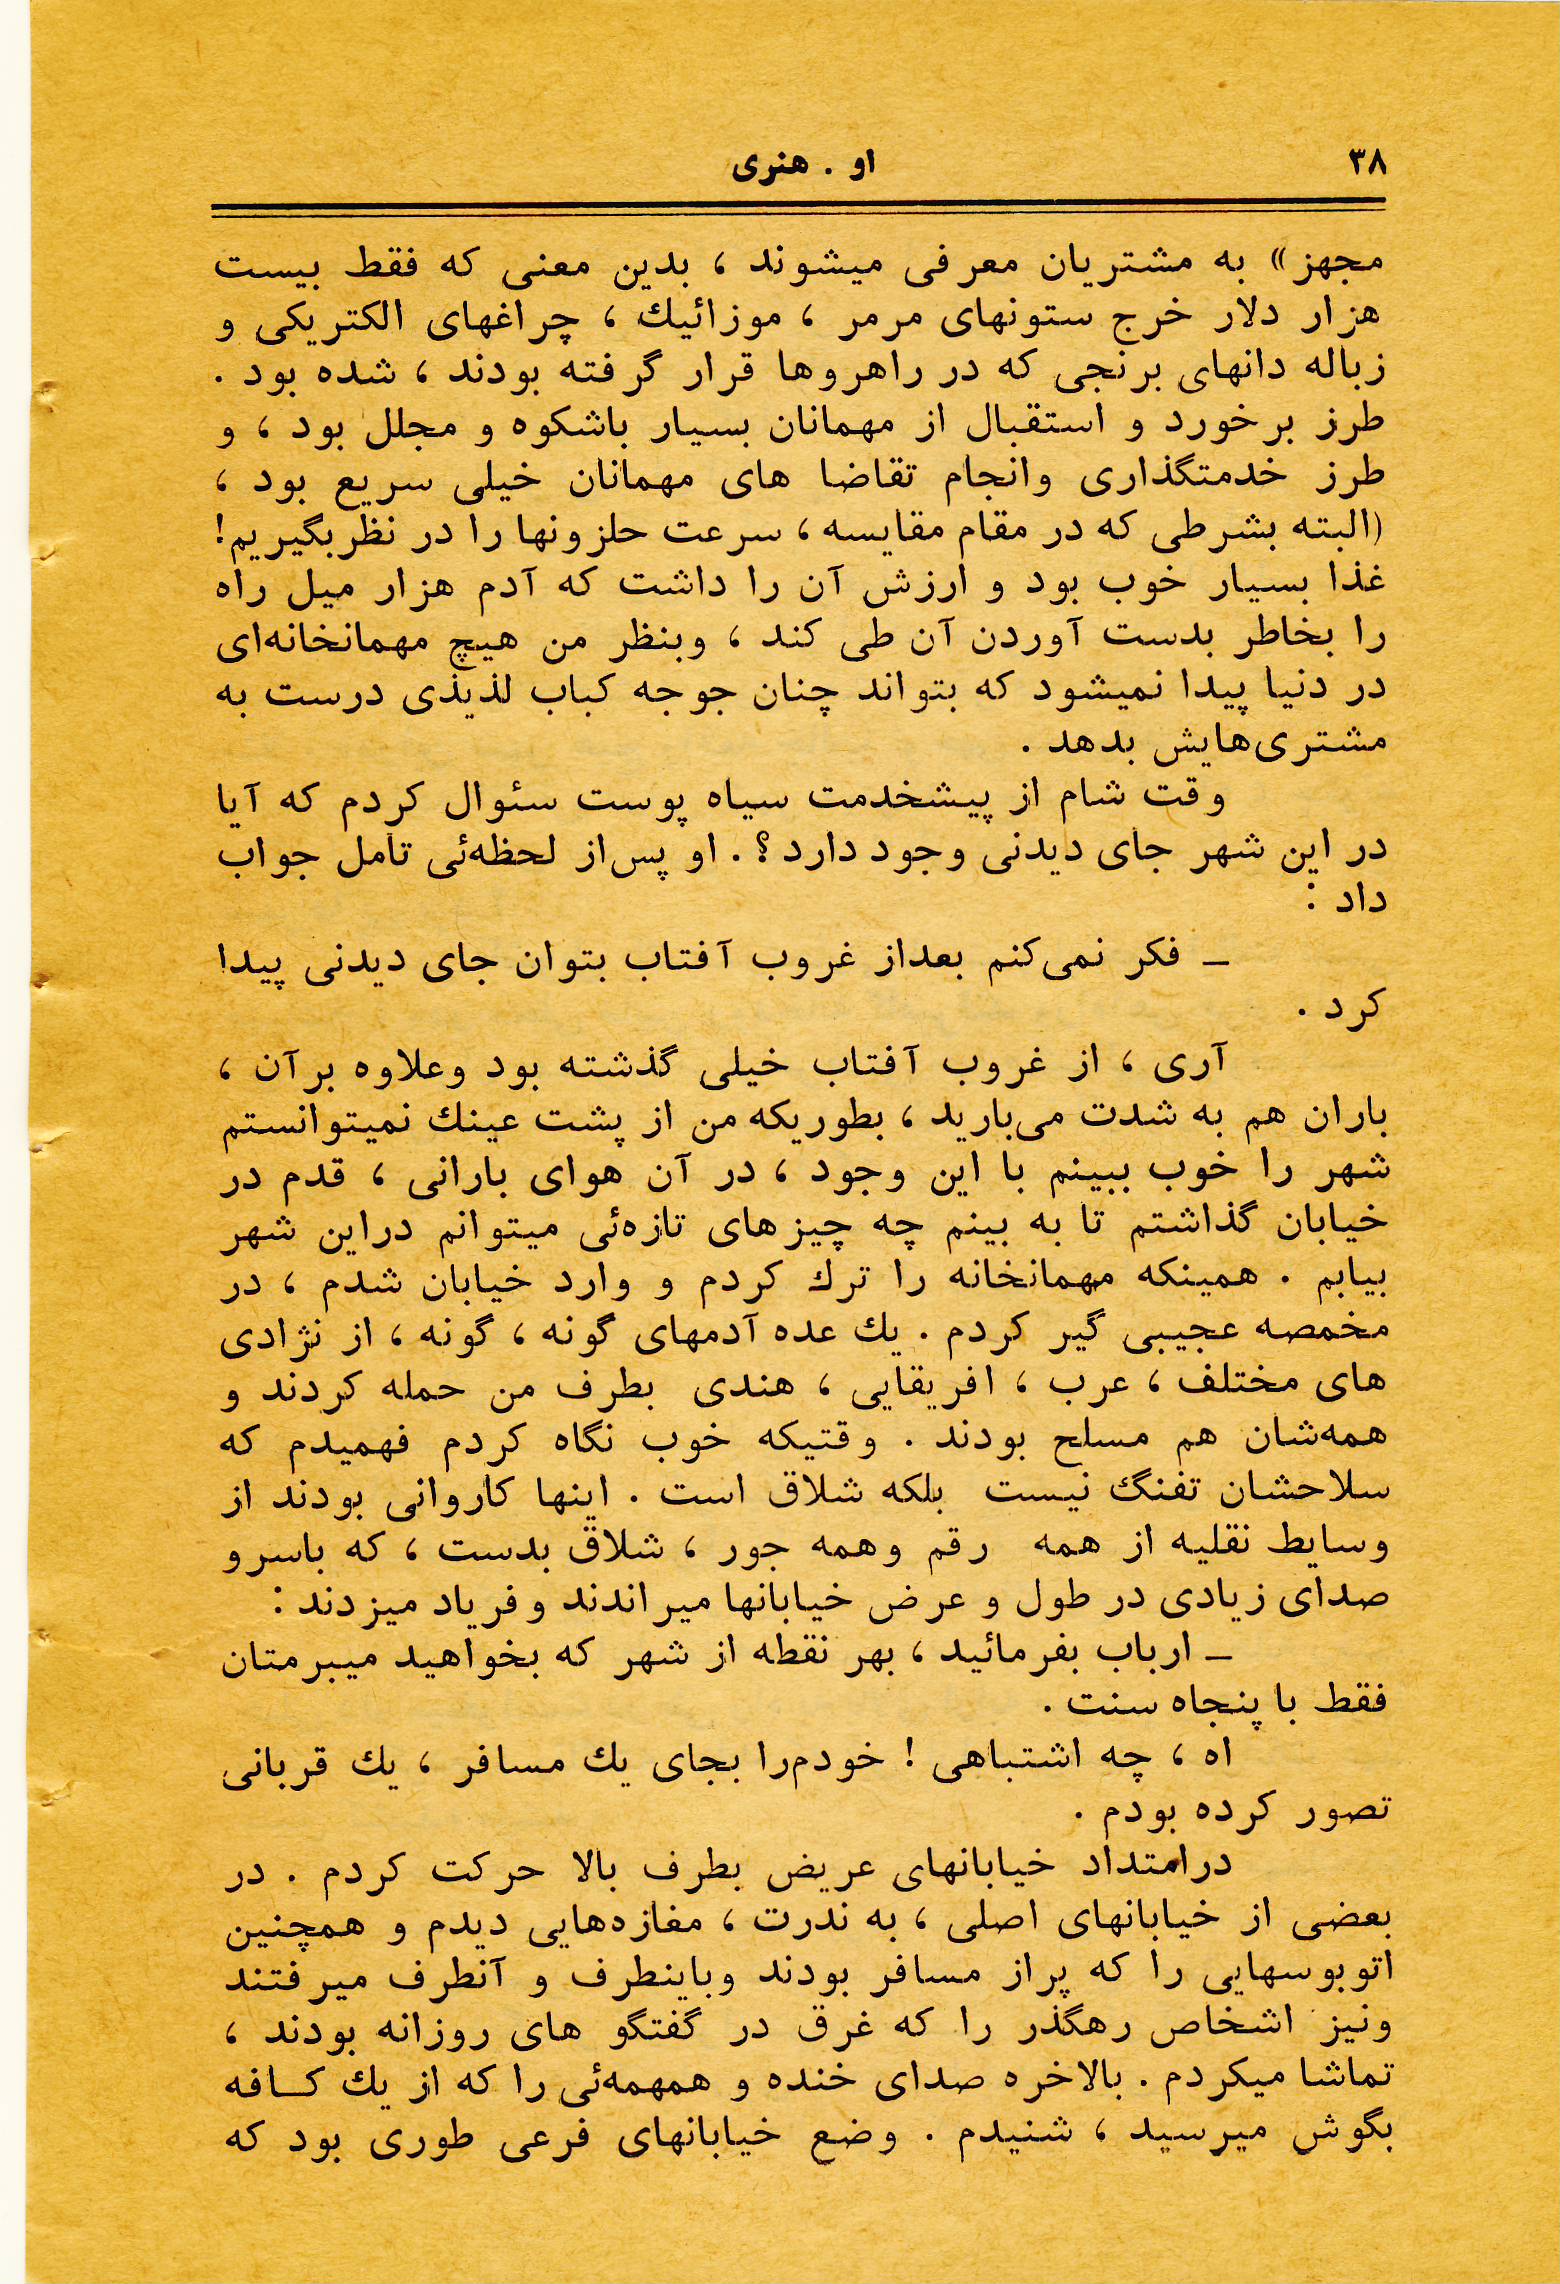 ۳۸
او . هنری
مجهز» به مشتریان معرفی میشوند ، بدین معنی که فقط بیست
هزار دلار خرج ستونهای مرمر ، موزائیك ، چراغهای الکتریکی و
زباله دانهای برنجی که در راهروها قرار گرفته بودند ، شده بود .
طرز برخورد و استقبال از مهمانان بسیار باشکوه و مجلل بود ، و
طرز خدمتگذاری وانجام تقاضا های مهمانان خیلی سریع بود ،
(البته بشرطی که در مقام مقایسه ، سرعت حلزونها را در نظر بگیریم!
غذا بسیار خوب بود و ارزش آن را داشت که آدم هزار میل راه
را بخاطر بدست آوردن آن طی کند ، وبنظر من هیچ مهمانخانه‌ای
در دنیا پیدا نمیشود که بتواند چنان جوجه کباب لذیذی درست به
مشتری‌هایش بدهد .
وقت شام از پیشخدمت سیاه پوست سئوال کردم که آیا
در این شهر جای دیدنی وجود دارد ؟ . او پس‌از لحظه‌ئی تامل جواب
داد :
ـ فکر نمی‌کنم بعداز غروب آفتاب بتوان جای دیدنی پیدا
کرد .
آری ، از غروب آفتاب خیلی گذشته بود وعلاوه برآن ،
باران هم به شدت می‌بارید ، بطوریکه من از پشت عینك نمیتوانستم
شهر را خوب ببینم با این وجود ، در آن هوای بارانی ، قدم در
خیابان گذاشتم تا به بینم چه چیزهای تازه‌ئی میتوانم دراین شهر
بیابم . همینکه مهمانخانه را ترك کردم و وارد خیابان شدم ، در
مخمصه عجیبی گیر کردم . یك عده آدمهای گونه ، گونه ، از نژادی
های مختلف ، عرب ، افریقایی ، هندی بطرف من حمله کردند و
همه‌شان هم مسلح بودند . وقتیکه خوب نگاه کردم فهمیدم که
سلاحشان تفنگ نیست بلکه شلاق است . اینها کاروانی بودند از
وسایط نقلیه از همه رقم وهمه جور ، شلاق بدست ، که باسرو
صدای زیادی در طول و عرض خیابانها میراندند و فریاد میزدند :
ـ ارباب بفرمائید ، بهر نقطه از شهر که بخواهید میبرمتان
فقط با پنجاه سنت .
اه ، چه اشتباهی ! خودم‌را بجای یك مسافر ، یك قربانی
تصور کرده بودم .
درامتداد خیابانهای عریض بطرف بالا حرکت کردم . در
بعضی از خیابانهای اصلی ، به ندرت ، مغازه‌هایی دیدم و همچنین
اتوبوسهایی را که پراز مسافر بودند وباینطرف و آنطرف میرفتند
ونیز اشخاص رهگذر را که غرق در گفتگو های روزانه بودند ،
تماشا میکردم . بالاخره صدای خنده و همهمه‌ئی را که از یك کـافه
بگوش میرسید ، شنیدم . وضع خیابانهای فرعی طوری بود که